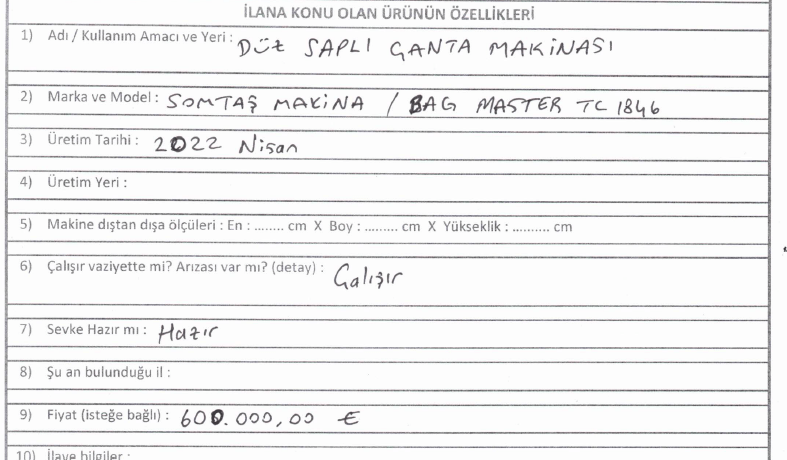 İLANA KONU OLAN ÜRÜNÜN ÖZELLİKLERİ
1) Adı / Kullanım Amacı ve Yeri : DÜZ SAPLI ÇANTA MAKİNASI
2) Marka ve Model : SOMTAŞ MAKİNA / BAG MASTER TC 1846
3) Üretim Tarihi : 2022 Nisan
4) Üretim Yeri :
5) Makine dıştan dışa ölçüleri : En : ........ cm X Boy : ......... cm X Yükseklik : .......... cm
6) Çalışır vaziyette mi? Arızası var mı? (detay) : Çalışır
7) Sevke Hazır mı : Hazır
8) Şu an bulunduğu il :
9) Fiyat (isteğe bağlı) : 600.000,00 €
10) İlave bilgiler :